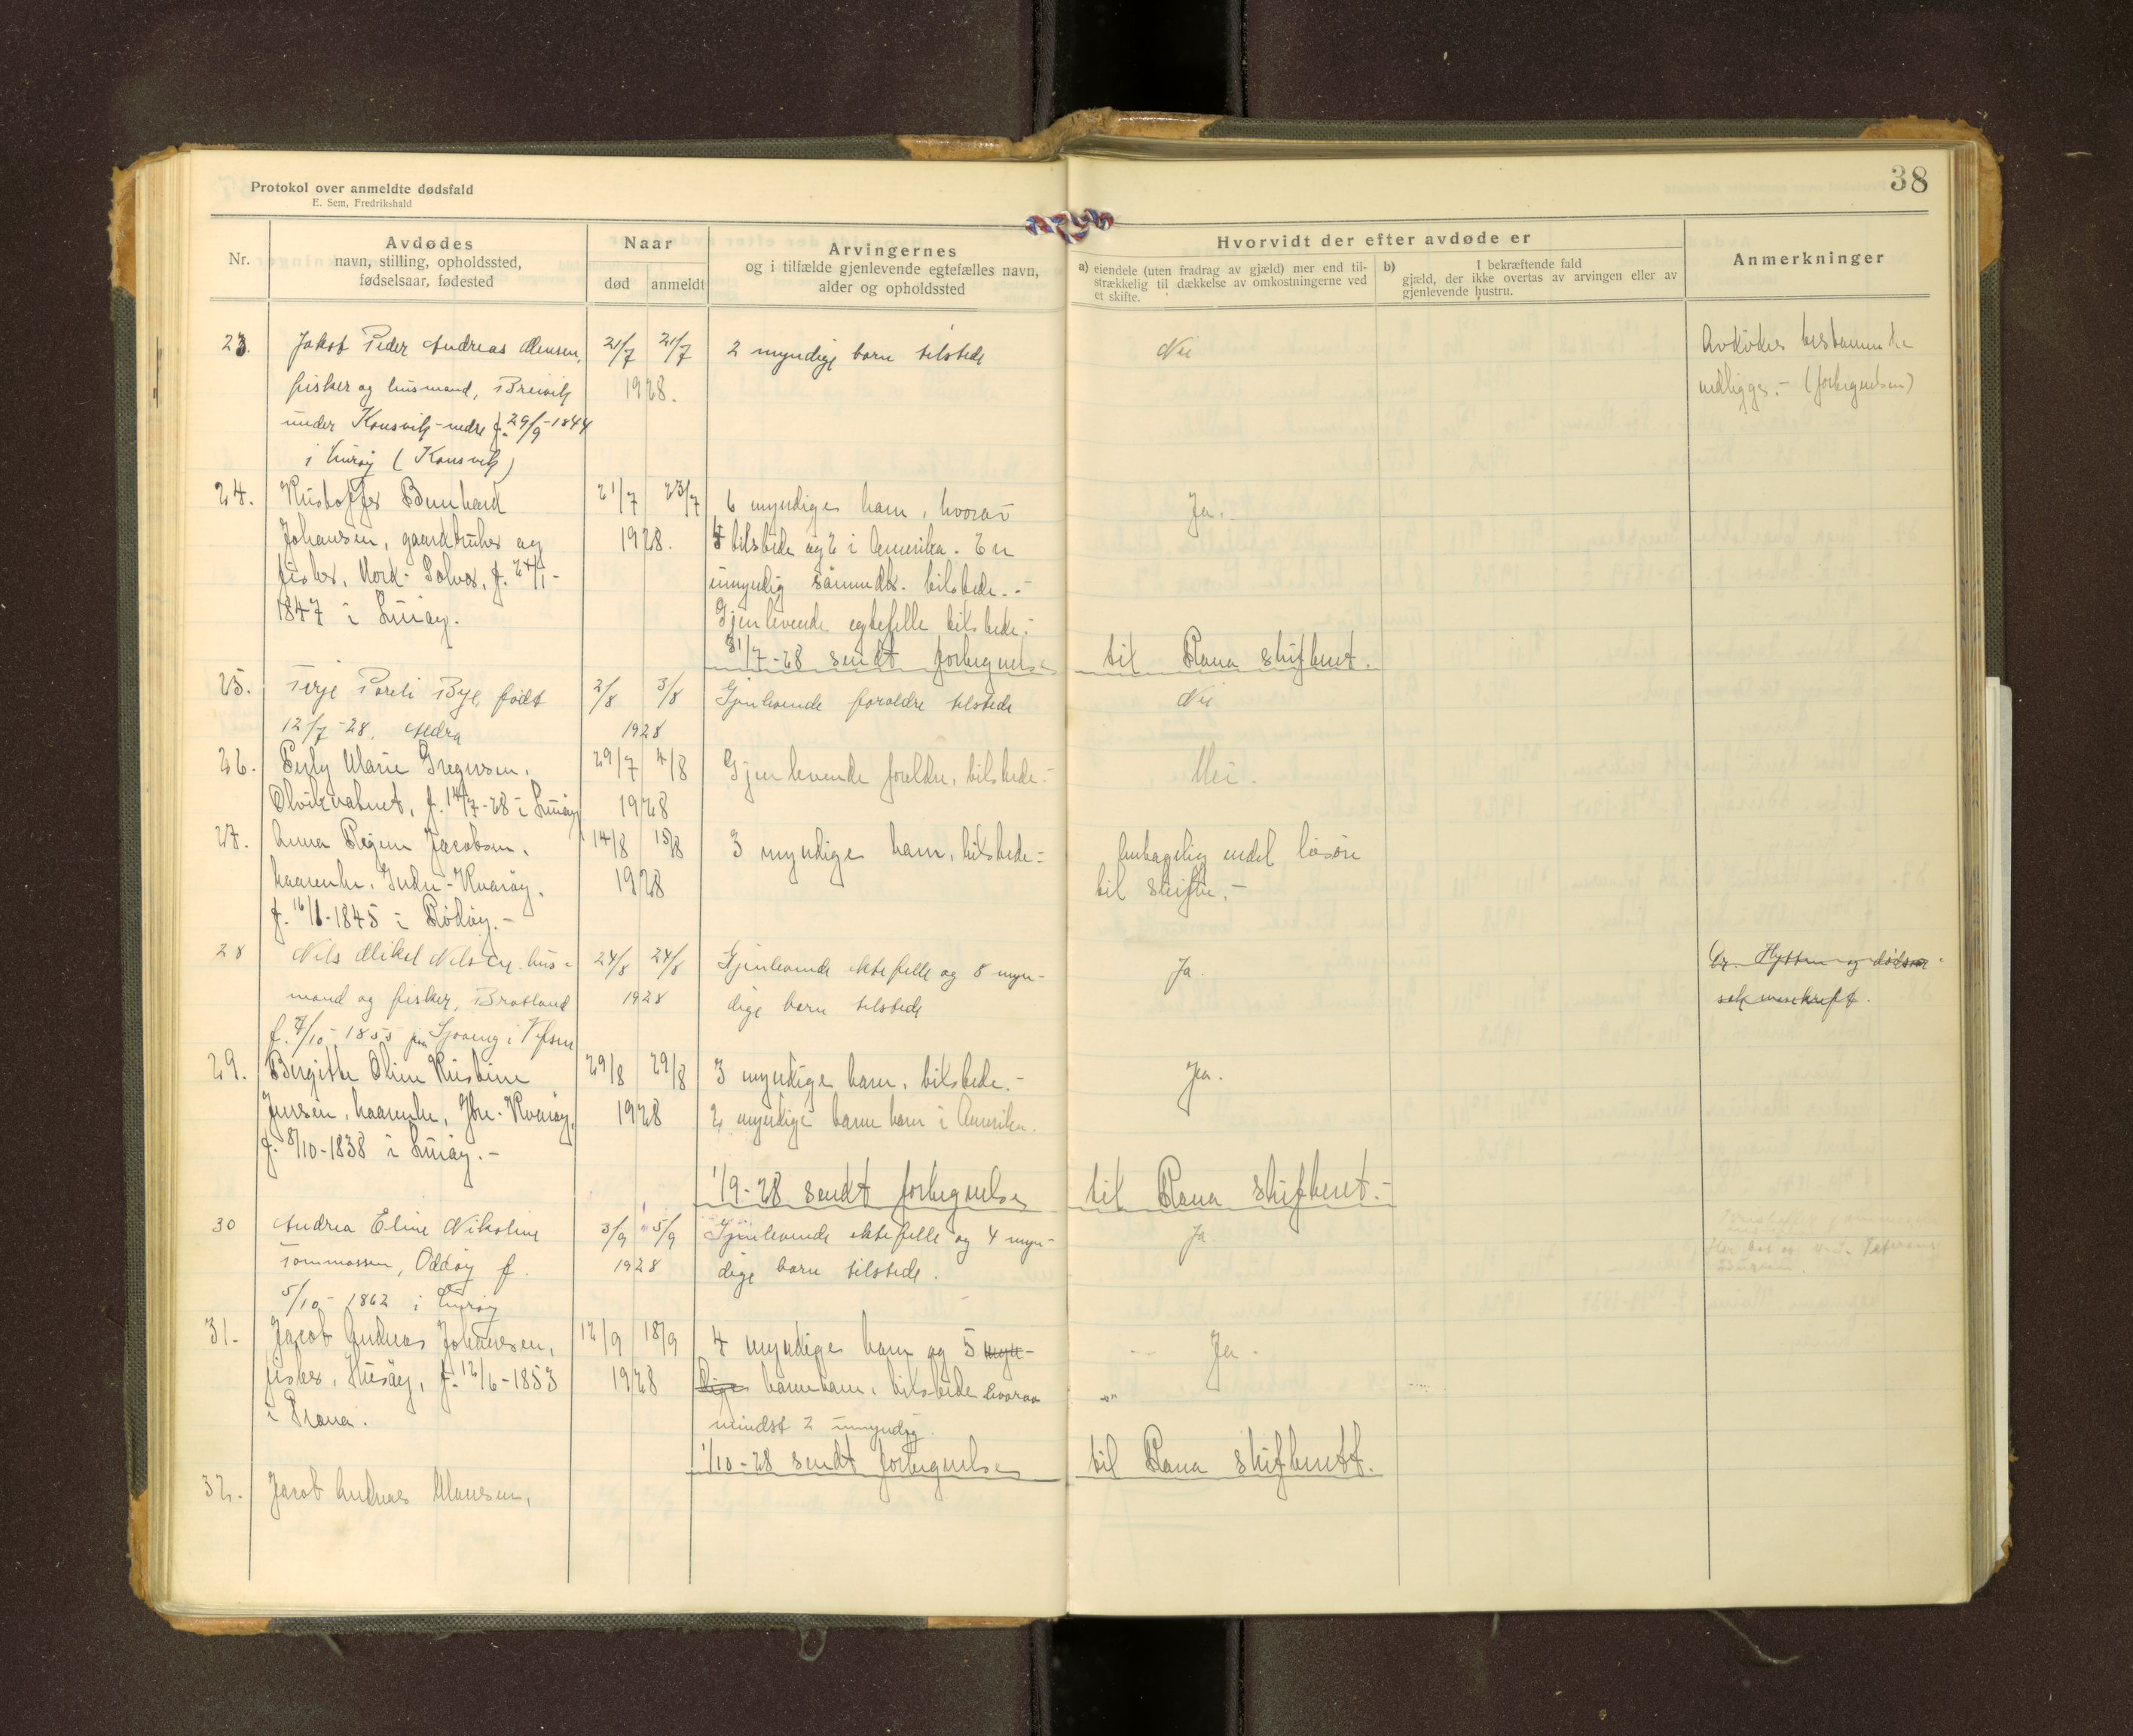 38
Protokol over anmeldte dødsfald
E. Sem, Fredrikshald
Nr.
Avdødes
navn, stilling, opholdssted,
fødselsaar, fødested
Naar
død
anmeldt
Arvingernes
og i tilfælde gjenlevende egtefælles navn,
alder og opholdssted
Hvorvidt der efter avdøde er
a) eiendele (uten fradrag av gjæld) mer end til-
strækkelig til dækkelse av omkostningerne ved
et skifte.
b) I bekræftende fald
gjæld, der ikke overtas av arvingen eller av
gjenlevende hustru.
Anmerkninger
23. Jakob Peder Andreas Olensen, 21/7 21/7 2 myndige barn tilstede Nei Avdødes
fisker og husmand, Breivik 1928. vedligge. - (forbegnelsen)
under Konsvik-nedre f. 29/9-1844
i Lurøy (Konsvik)
24. Kristoffer Bernhard 21/7 23/7 6 myndige barn, hvorav Ja.
Johansen, gaardbruker og 1928. 4 tilstede og 2 i Amerika. En
fisker, Nord-Solvær, f. 24/1- umyndig sammedst. tilstede. -
1847 i Lurøy. Gjenlevende egtefelle tilstede. -
31/7-28 sendt forbegnelse til Rana skifteret.
25. Terje Pareli Bye, født 2/8 3/8 Gjenlevende foreldre tilstede Nei
12/7-28. Aldra 1928
26. Perly Marie Gregersen, 29/7 4/8 Gjenlevende foreldre, tilstede. - Nei.
Olvikvatnet, f. 14/7-28 i Lurøy 1928
27. Anna Regine Jacobsen, 14/8 15/8 3 myndige barn, tilstede - endel løsøre
kaarenke, Indre-Kvarøy. 1928 til skifte. -
f. 16/1-1845 i Rødøy. -
28 Nils Mikal Nilsen, hus- 24/8 24/8 Gjenlevende ektefelle og 8 myn- Ja.
mand og fisker, Bratland 1928 dige barn tilstede
f. 4/10-1855 på i Vefsen
29. Birgitte Oline Kristine 29/8 29/8 3 myndige barn, tilstede. - Ja.
Jensen, kaarenke, Ytre-Kvarøy, 1928 2 myndige barnebarn i Amerika.
f. 8/10-1838 i Lurøy. -
1/9-28 sendt forbegnelse til Rana skifteret. -
30 Andrea Eline Nikoline 3/9 5/9 Gjenlevende ektefelle og 4 myn- Ja
Tommassen, Oddøy f. 1928 dige barn tilstede.
5/10-1862 i Lurøy
31. Jacob Andreas Johansen, 12/9 18/9 4 myndige barn og 5 myn- Ja.
fisker, Husøy, f. 12/6-1853 1928 dige barnebarn, tilstede hvorav
i Træna. mindst 2 umyndig.
1/10-28 sendt forbegnelse til Rana skifterett.
32. Jacob Andreas